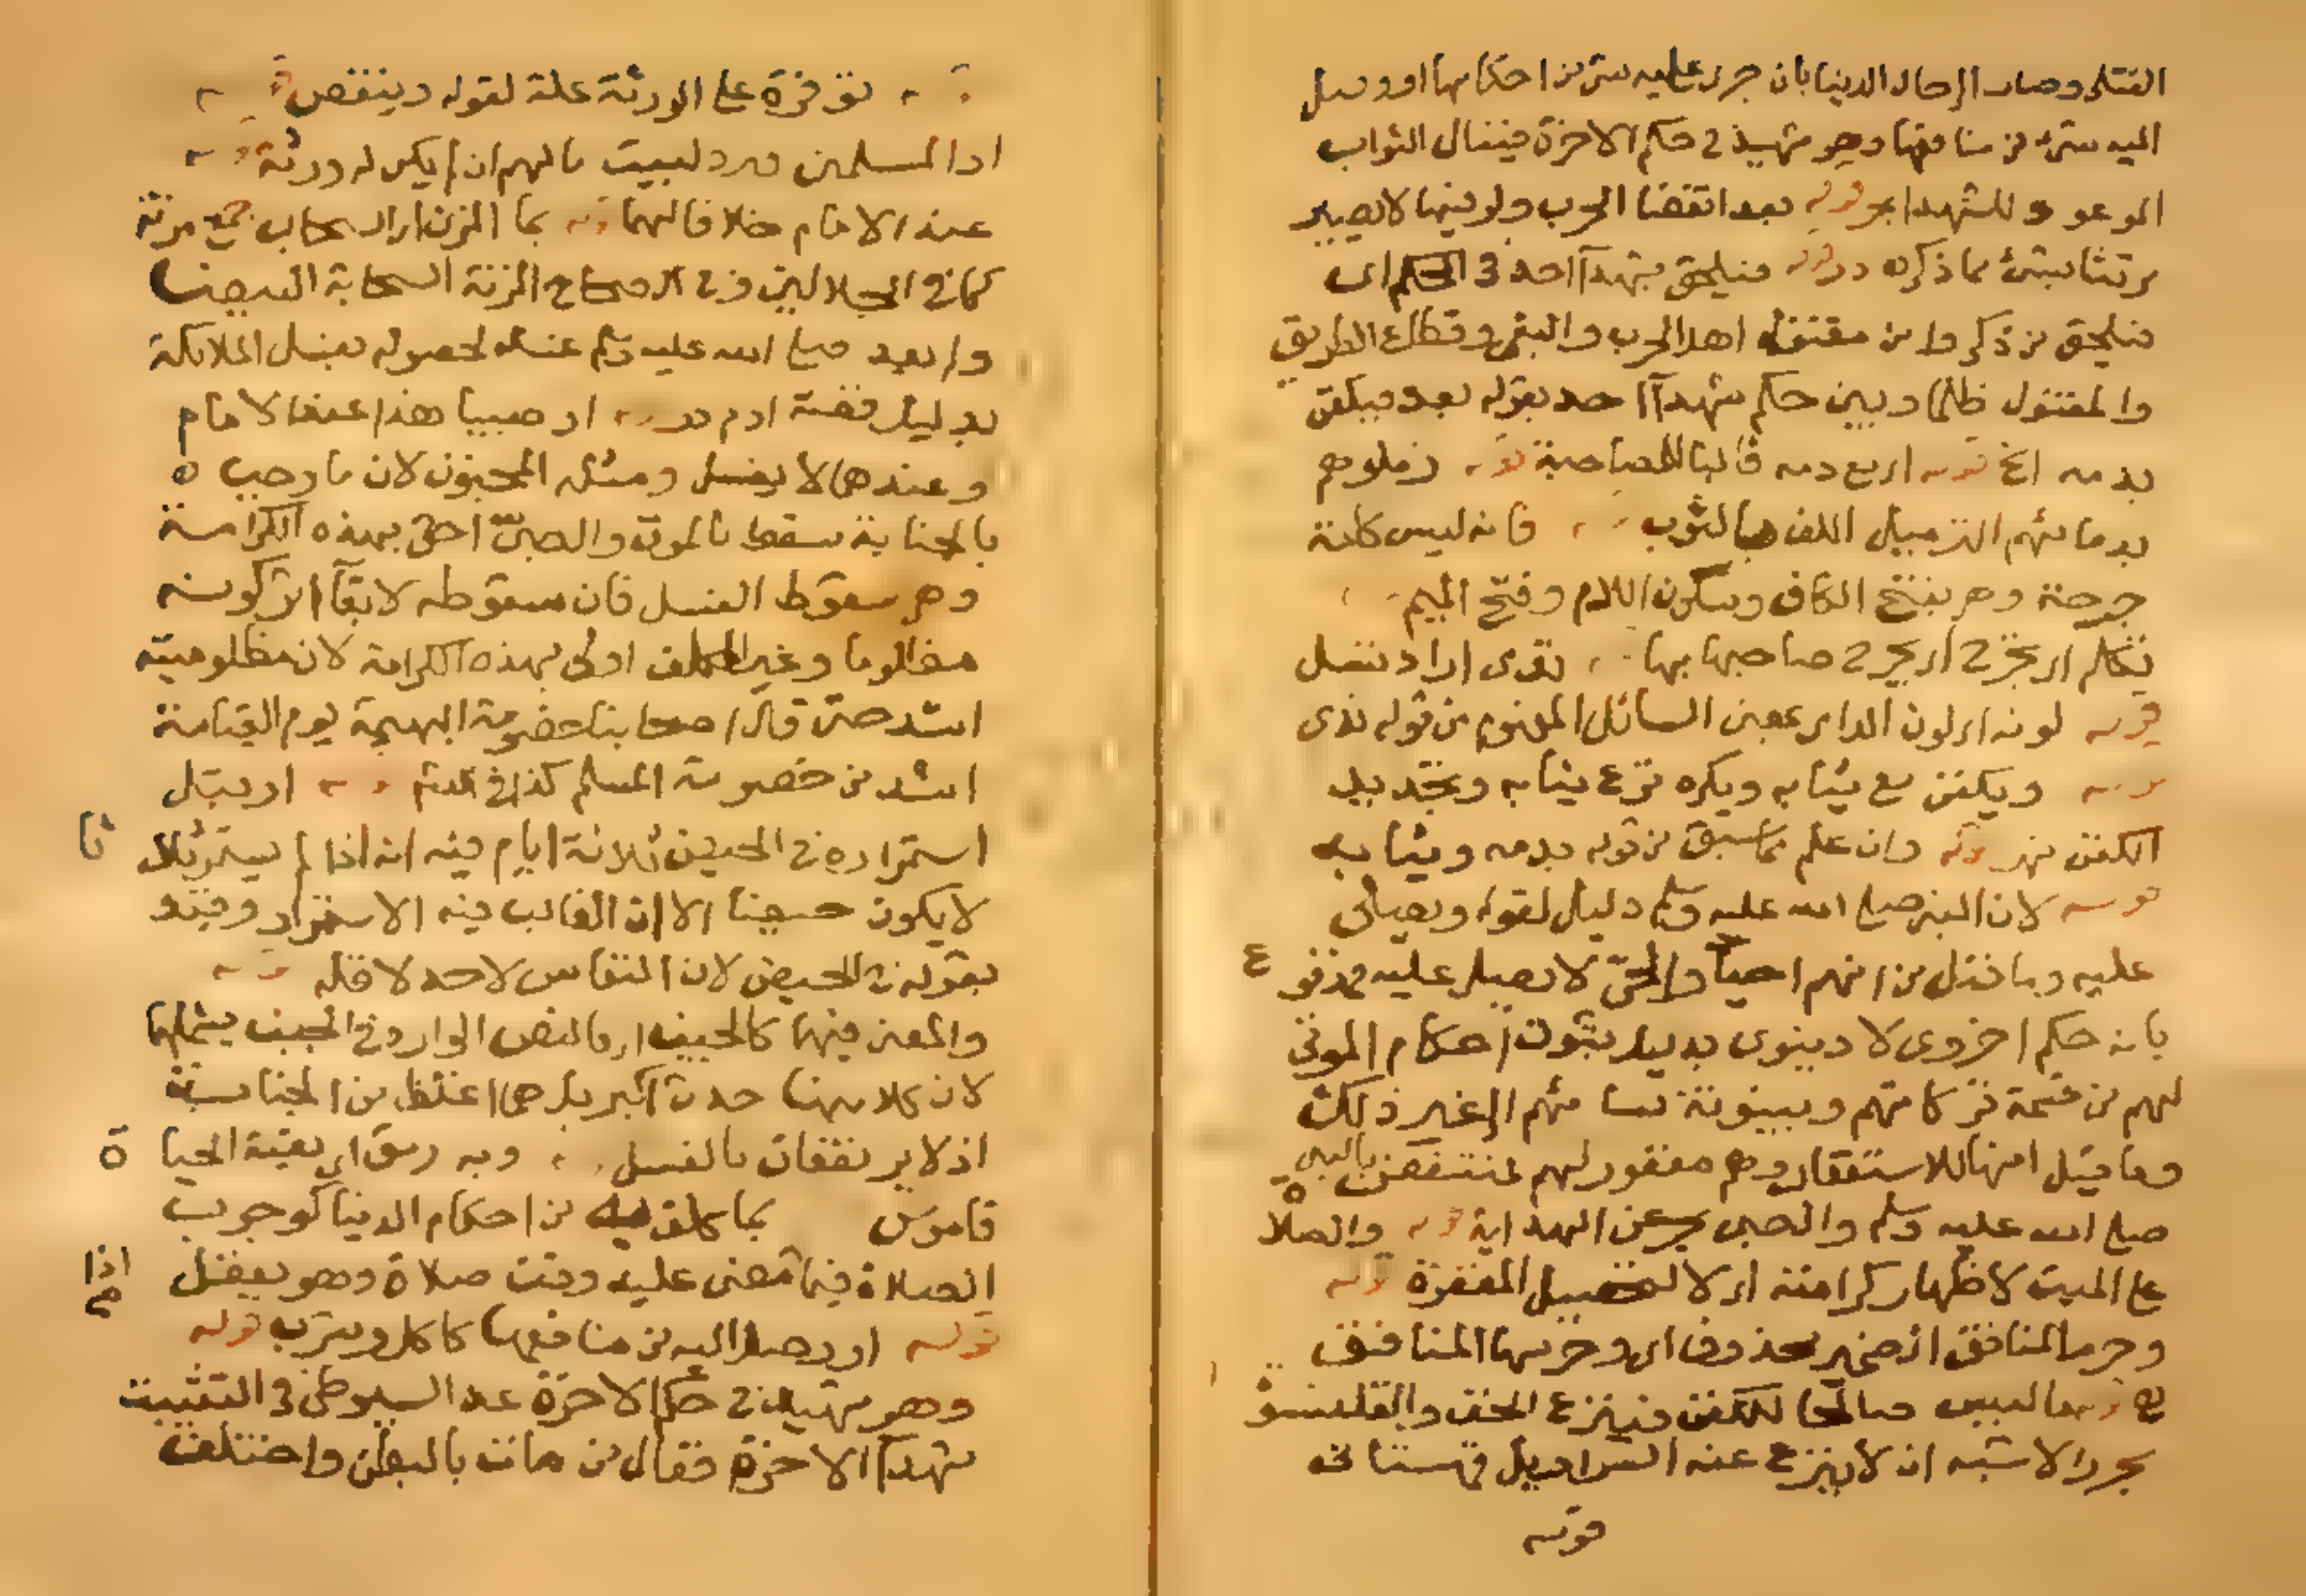 القتلى وصار الى حال الدنيا بان جرى عليه شئ من احكامها او وصل
اليه شئ من منافعها وهو شهيد في حكم الاخرة فينال الثواب
الموعود للشهدا بحر قوله بعد انقضا الحرب ولو فيها لا يصير
مرتثا بشئ مما ذكره درر قوله فيلحق بشهدآ احد في الحكم اى
فيلحق من ذكر وا من مقتول اهل الحرب والبغى وقطاع الطريق
والمقتول ظلما وبين حكم شهدآ احد بقوله بعد فيكفن
بدمه الخ قوله اى مع دمه فالبا للمصاحبة قوله زملوهم
بدمائهم التزميل اللف بالثوب فانه ليس كلمة
جرحة وهو بفتح الكاف وسكون اللام وفتح الميم
تكلم اى تجرح اى يجرح صاحبها بها تدى اراد تسل
قوله لونه اى لون الدا بمعنى السائل المفهوم من قوله تدى
قوله ويكفن مع ثيابه ويكره نزع ثيابه وتجديد
الكفن نهر قوله وان علم مما سبق من قوله بدمه وثيابه
قوله لان النبى صلى الله عليه وسلم دليل لقوله ويصلى
عليه وما قيل من انهم احيآ والحىّ لا يصلى عليه مدفوع
بانه حكم اخروى لا دينوى بدليل ثبوت احكام الموتى
لهم من قسمة تركاتهم وبينونة نسائهم الى غير ذلك
وما قيل انها للاستغفار وهم مغفور لهم منتقض بالنبى
صلى الله عليه وسلم والصبى بحر عن الهداية قوله والصلاة
على الميت لاظهار كرامته اى لا لتحصيل المغفرة قوله
وحرم المنافق الضمير محذوف اى وحرمها المنافق
قوله ما ليس صالحا للكفن فينزع الخف والقلنسوة
بحر والاشبه ان لا ينزع عنه السراويل قهستانى
قوله
توفرة على الورثة علة لقوله وينقص
او المسلمين مرد لبيت مالهم ان لم يكن له ورثة
عند الامام خلافا لهما قوله بما المزن اى السحاب جمع مزنة
كما فى الجلالين وفى الصحاح المزنة السحابة البيضا
ولم يعد صلى الله عليه وسلم غسله لحصوله بغسل الملائكة
بدليل قصة ادم درر قوله او صبيا هذا عند الامام
وعندهما لا يغسل ومثله المجنون لان ما وجب
بالجنابة سقط بالموت والصبىّ احق بهذه الكرامة
وهى سقوط الغسل فان سقوطه لابقآ اثر كونه
مظلوما وغير المكلف اولى بهذه الكرامة لان مظلوميته
اشد حتى قال اصحابنا خصومة البهيمة يوم القيامة
اشد من خصومة المسلم كذا فى الفتح قوله او قبل
استمراره فى الحيض ثلاثة ايام فيه انه اذا لم يستمر ثلاثا
لا يكون حيضا الا ان الغالب فيه الاستمرار وقيد
بقوله فى الحيض لان النفاس لا حد لاقله قوله
والمعنى فيهما كالحيض او فالنص الوارد فى الجنب يشملهما
لان كلا منهما حدث اكبر بل هما اغلظ من الجنابة
اذ لا يرتفعان بالغسل وبه رمق اى بقية الحياة
قاموس بما كلف به من احكام الدنيا كوجوب
الصلاة فيما اذا مضى عليه وقت صلاة وهو يعقل
قوله او وصل اليه من منافعها كاكل وشرب قوله
وهو شهيد فى حكم الاخرة عد السيوطى فى التثبيت
شهدآ الاخرة فقال من مات بالبطن واختلف